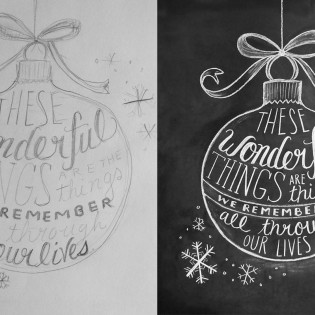 THESE
nderful
NGS ARE THE
things
REMEMBER
through
our lives
THESE
Wonderf
THINGS ARE
thi
WE REMEMBE
all throu
OUR LIVES